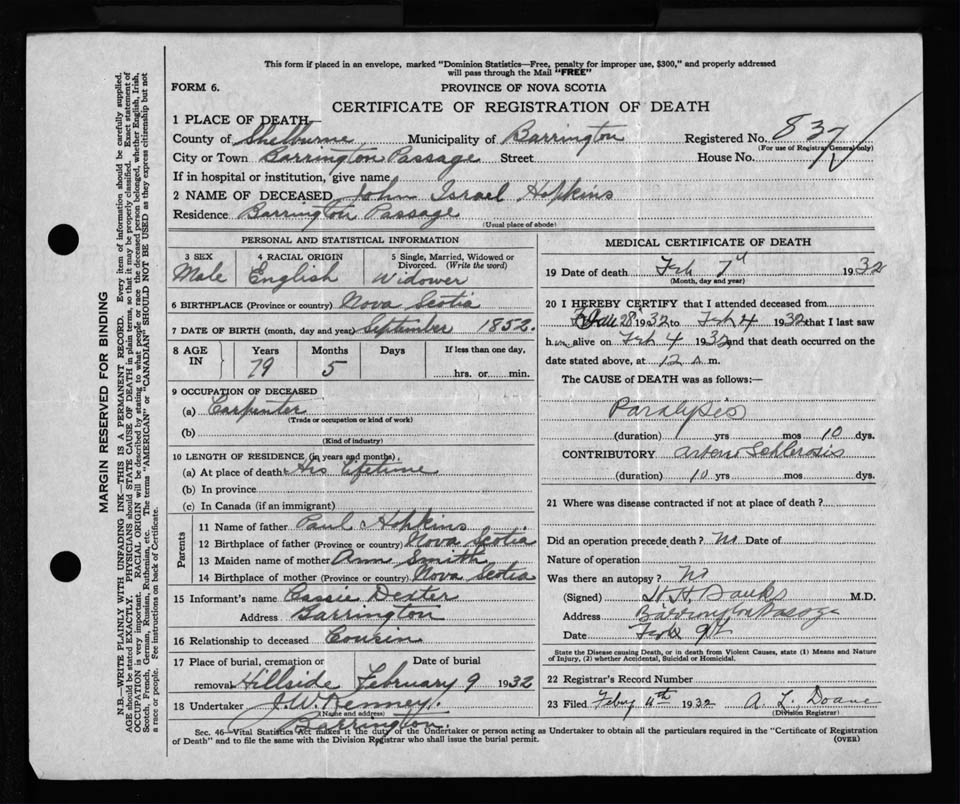 This form if placed in an envelope, marked "Dominion Statistics—Free, penalty for improper use, $300," and properly addressed
will pass through the Mail "FREE"
FORM 6. PROVINCE OF NOVA SCOTIA
CERTIFICATE OF REGISTRATION OF DEATH
1 PLACE OF DEATH—
County of Shelburne Municipality of Barrington Registered No. 837
(For use of Registrar General only)
City or Town Barrington Passage Street House No.
If in hospital or institution, give name
2 NAME OF DECEASED John Israel Hopkins
Residence Barrington Passage
(Usual place of abode)
PERSONAL AND STATISTICAL INFORMATION
3 SEX 4 RACIAL ORIGIN 5 Single, Married, Widowed or Divorced. (Write the word)
Male English Widower
6 BIRTHPLACE (Province or country) Nova Scotia
7 DATE OF BIRTH (month, day and year) September 1852.
8 AGE IN Years Months Days If less than one day,
79 5 hrs. or min.
9 OCCUPATION OF DECEASED
(a) Carpenter
(Trade or occupation or kind of work)
(b)
(Kind of industry)
10 LENGTH OF RESIDENCE (in years and months)
(a) At place of death His lifetime
(b) In province
(c) In Canada (if an immigrant)
Parents
11 Name of father Paul Hopkins
12 Birthplace of father (Province or country) Nova Scotia
13 Maiden name of mother Ann Smith
14 Birthplace of mother (Province or country) Nova Scotia
15 Informant's name Cassie Dexter
Address Barrington
16 Relationship to deceased Cousin
17 Place of burial, cremation or Date of burial
removal Hillside February 9 1932
18 Undertaker J.W. Kenney.
(Name and address)
Barrington.
MEDICAL CERTIFICATE OF DEATH
19 Date of death Feb 7th 1932
(Month, day and year)
20 I HEREBY CERTIFY that I attended deceased from
Jan 28 1932 to Feb 4 1932 that I last saw
him alive on Feb 4 1932 and that death occurred on the
date stated above, at 12 m.
The CAUSE of DEATH was as follows:—
Paralysis
(duration) yrs mos 10 dys.
CONTRIBUTORY Arterio Schlerosis
(duration) 10 yrs mos dys.
21 Where was disease contracted if not at place of death?
Did an operation precede death? No Date of
Nature of operation
Was there an autopsy? No
(Signed) H H Banks M.D.
Address Barrington Passage
Date Feb 9th
State the Disease causing Death, or in death from Violent Causes, state (1) Means and Nature
of Injury, (2) whether Accidental, Suicidal or Homicidal.
22 Registrar's Record Number
23 Filed Feby 1932 A. L. Doane
(Division Registrar)
Sec. 46—Vital Statistics Act makes it the duty of the Undertaker or person acting as Undertaker to obtain all the particulars required in the "Certificate of Registration
of Death" and to file the same with the Division Registrar who shall issue the burial permit. (OVER)
MARGIN RESERVED FOR BINDING
N.B.—WRITE PLAINLY WITH UNFADING INK—THIS IS A PERMANENT RECORD. Every item of information should be carefully supplied.
AGE should be stated EXACTLY. PHYSICIANS should STATE CAUSE OF DEATH in plain terms, so that it may be properly classified. Exact statement of
OCCUPATION is very important. RACIAL ORIGIN will be described by stating to what people or race the deceased person belonged, whether English, Irish,
Scotch, French, German, Russian, Ruthenian, etc. The terms "AMERICAN" or "CANADIAN" SHOULD NOT BE USED as they express citizenship but not
a race or people. See instructions on back of Certificate.